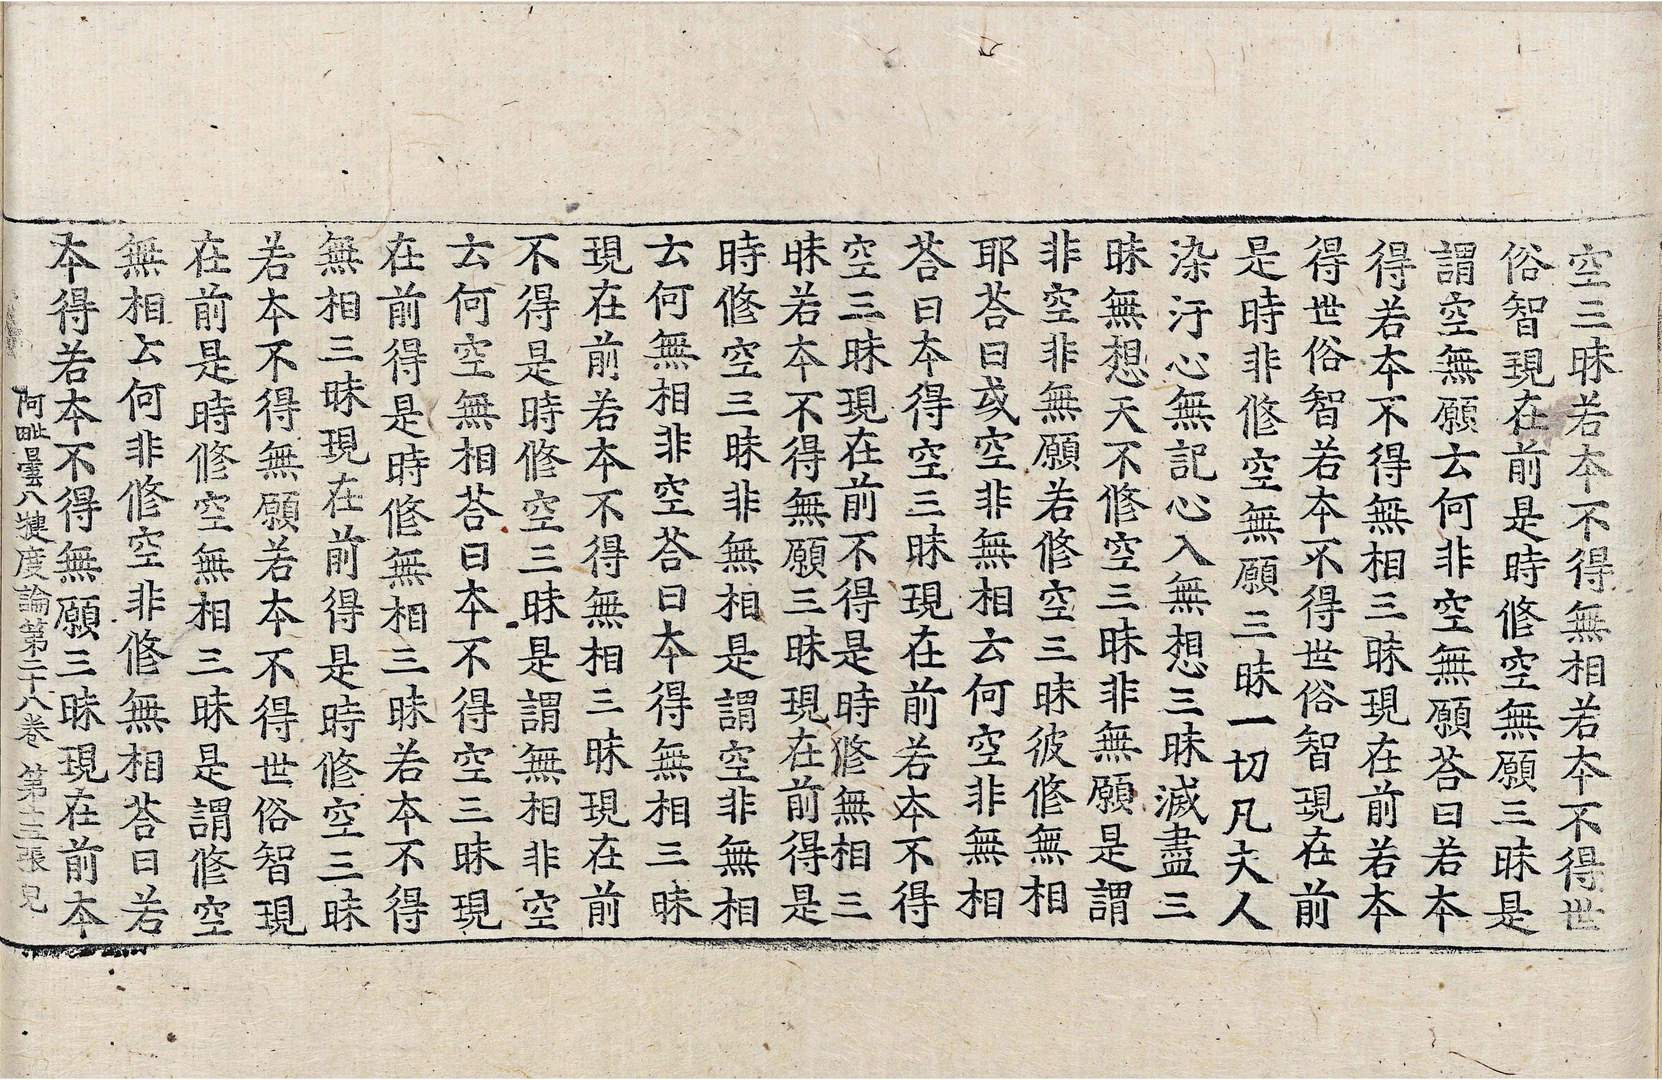 空三昧若本不得無相若本不得世
俗智現在前是時修空無願三昧是
謂空無願云何非空無願荅曰若本
得若本不得無相三昧現在前若本
得世俗智若本不得世俗智現在前
是時非修空無願三昧一切凡夫人
染汙心無記心入無想三昧滅盡三
昧無想天不修空三昧非無願是謂
非空非無願若修空三昧彼修無相
耶荅曰或空非無相云何空非無相
荅曰本得空三昧現在前若本不得
空三昧現在前不得是時修無相三
昧若本不得無願三昧現在前得是
時修空三昧非無相是謂空非無相
云何無相非空荅曰本得無相三昧
現在前若本不得無相三昧現在前
不得是時修空三昧是謂無相非空
云何空無相荅曰本不得空三昧現
在前得是時修無相三昧若本不得
無相三昧現在前得是時修空三昧
若本不得無願若本不得世俗智現
在前是時修空無相三昧是謂修空
無相云何非修空非修無相荅曰若
本得若本不得無願三昧現在前本
阿毗曇八犍度論第二十八卷 第十三張 兄